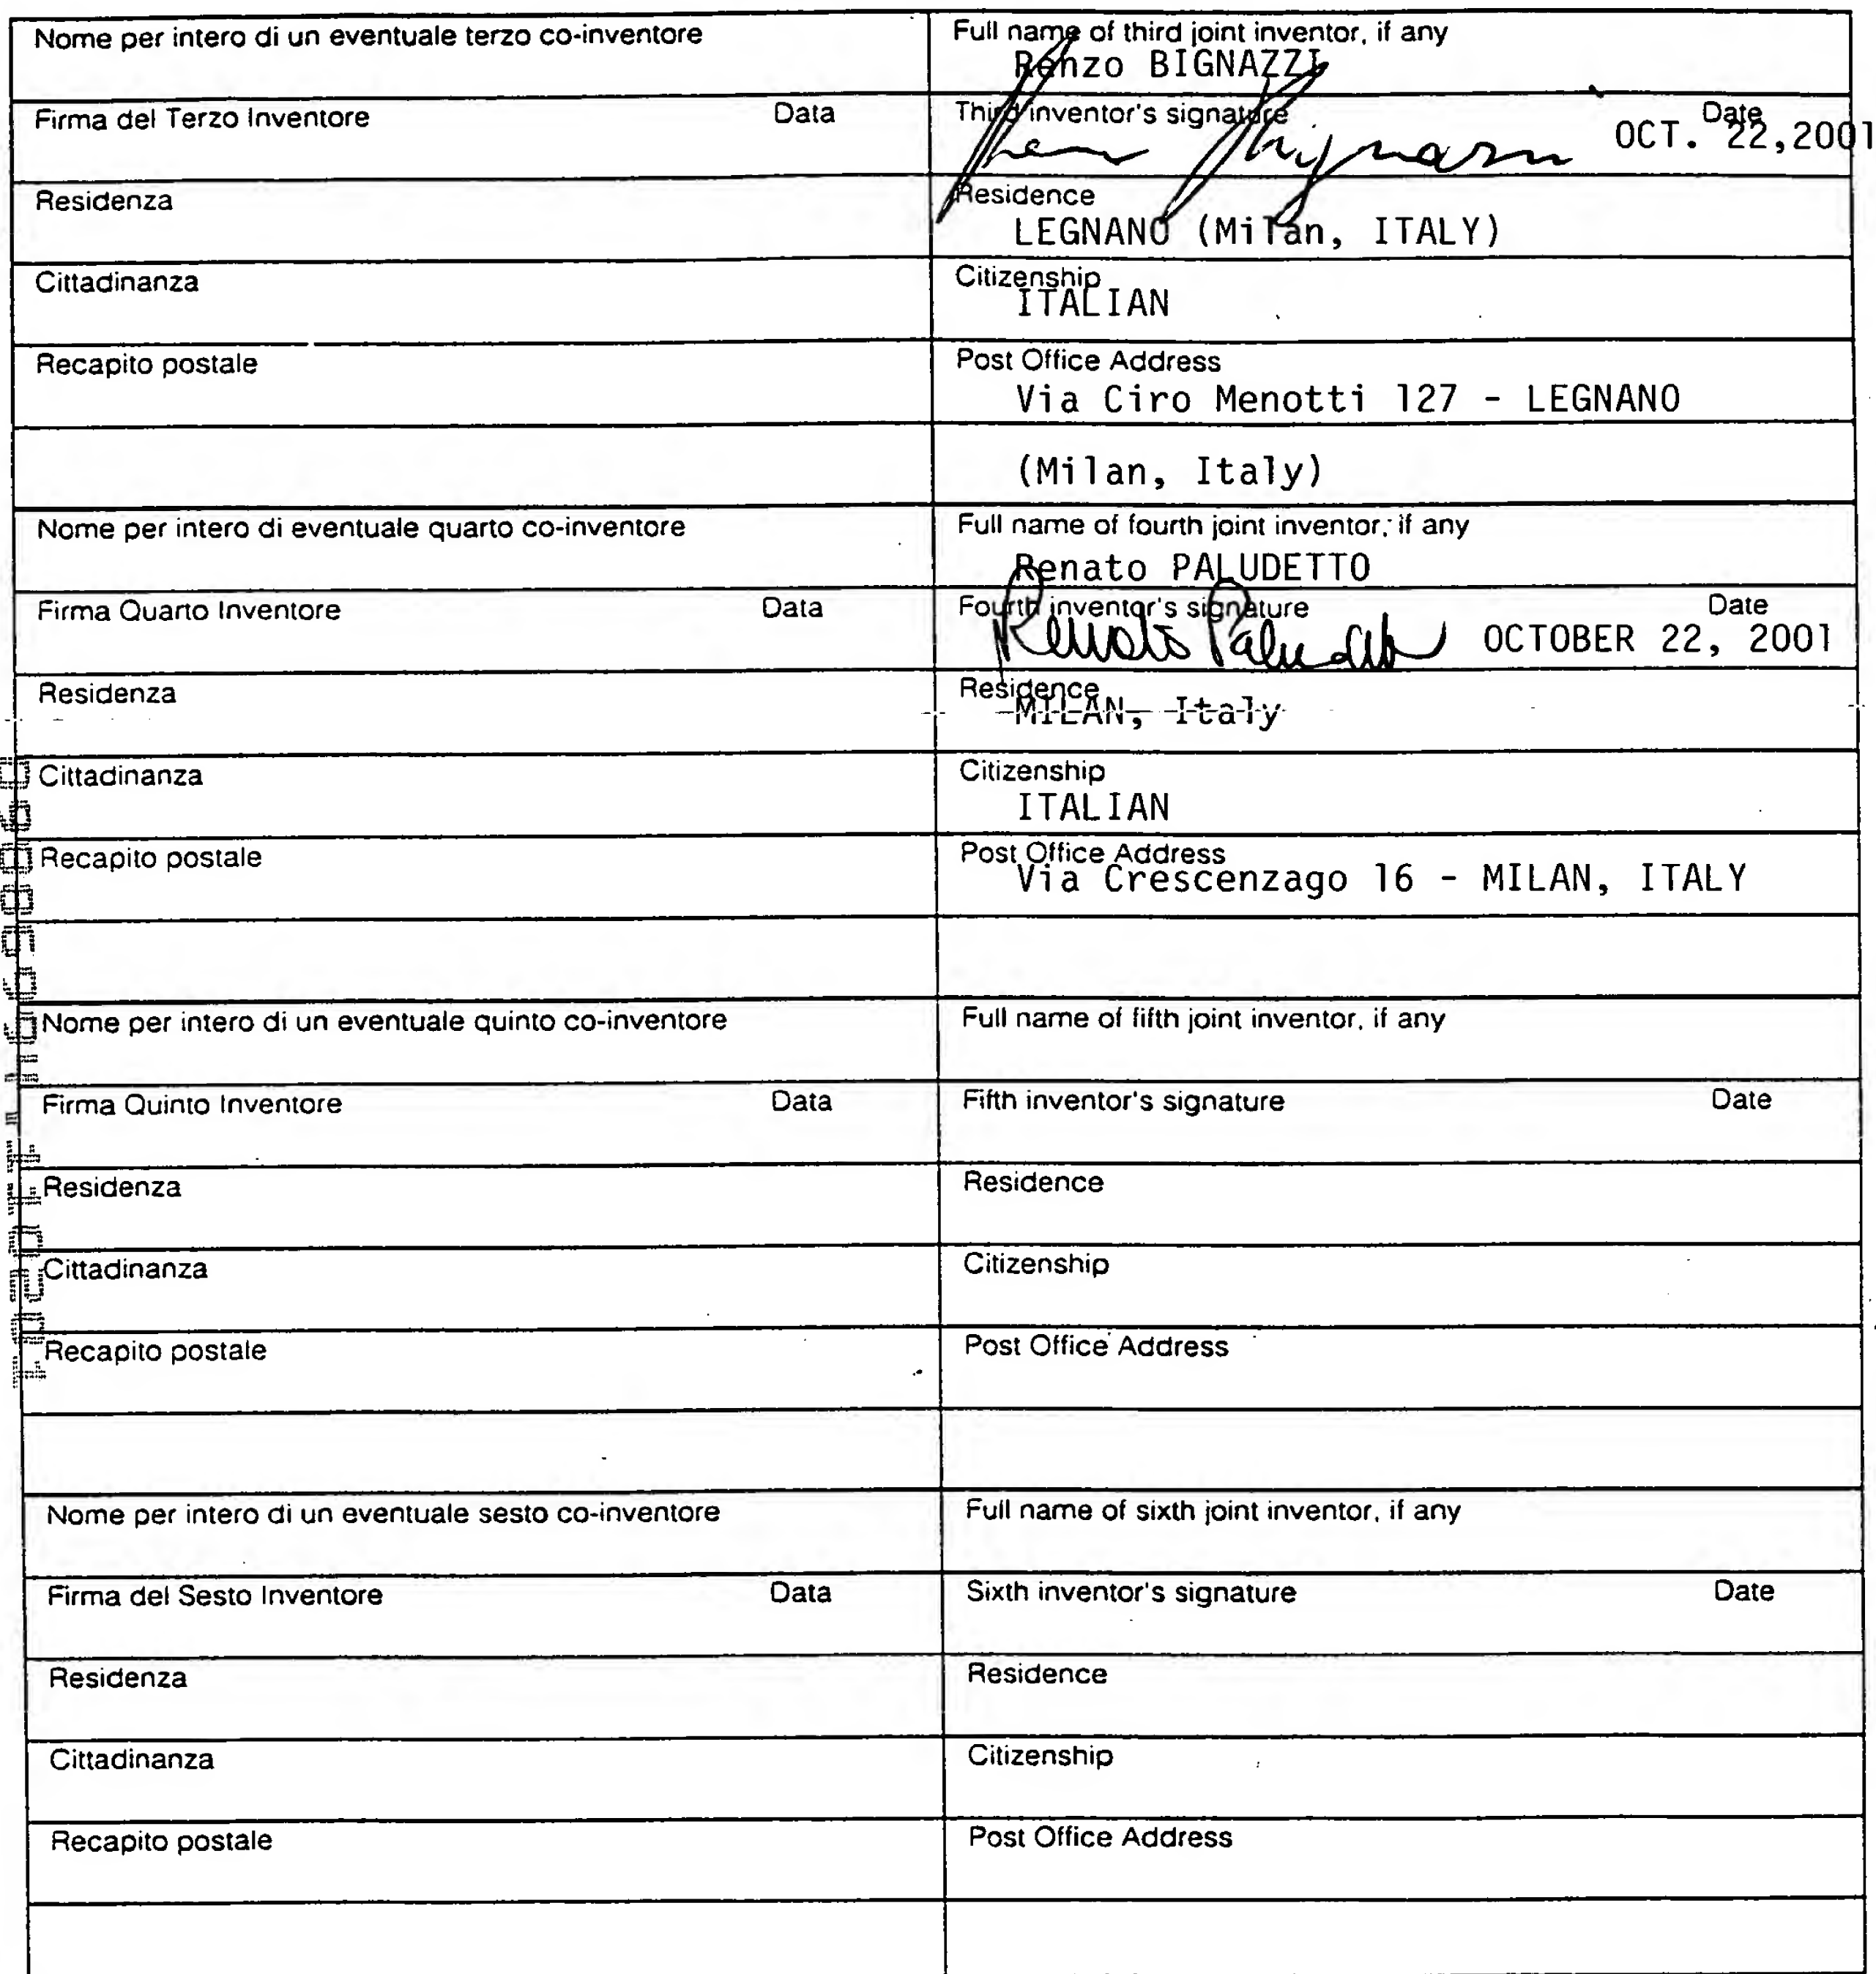 Nome per intero di un eventuale terzo co-inventore
Full name of third joint inventor, if any
Renzo BIGNAZZI
Firma del Terzo Inventore Data
Third inventor's signature Date
OCT. 22,2001
Residenza
Residence
LEGNANO (Milan, ITALY)
Cittadinanza
Citizenship
ITALIAN
Recapito postale
Post Office Address
Via Ciro Menotti 127 - LEGNANO
(Milan, Italy)
Nome per intero di eventuale quarto co-inventore
Full name of fourth joint inventor, if any
Renato PALUDETTO
Firma Quarto Inventore Data
Fourth inventor's signature Date
Renato Paludetto OCTOBER 22, 2001
Residenza
Residence
MILAN, Italy
Cittadinanza
Citizenship
ITALIAN
Recapito postale
Post Office Address
Via Crescenzago 16 - MILAN, ITALY
Nome per intero di un eventuale quinto co-inventore
Full name of fifth joint inventor, if any
Firma Quinto Inventore Data
Fifth inventor's signature Date
Residenza
Residence
Cittadinanza
Citizenship
Recapito postale
Post Office Address
Nome per intero di un eventuale sesto co-inventore
Full name of sixth joint inventor, if any
Firma del Sesto Inventore Data
Sixth inventor's signature Date
Residenza
Residence
Cittadinanza
Citizenship
Recapito postale
Post Office Address